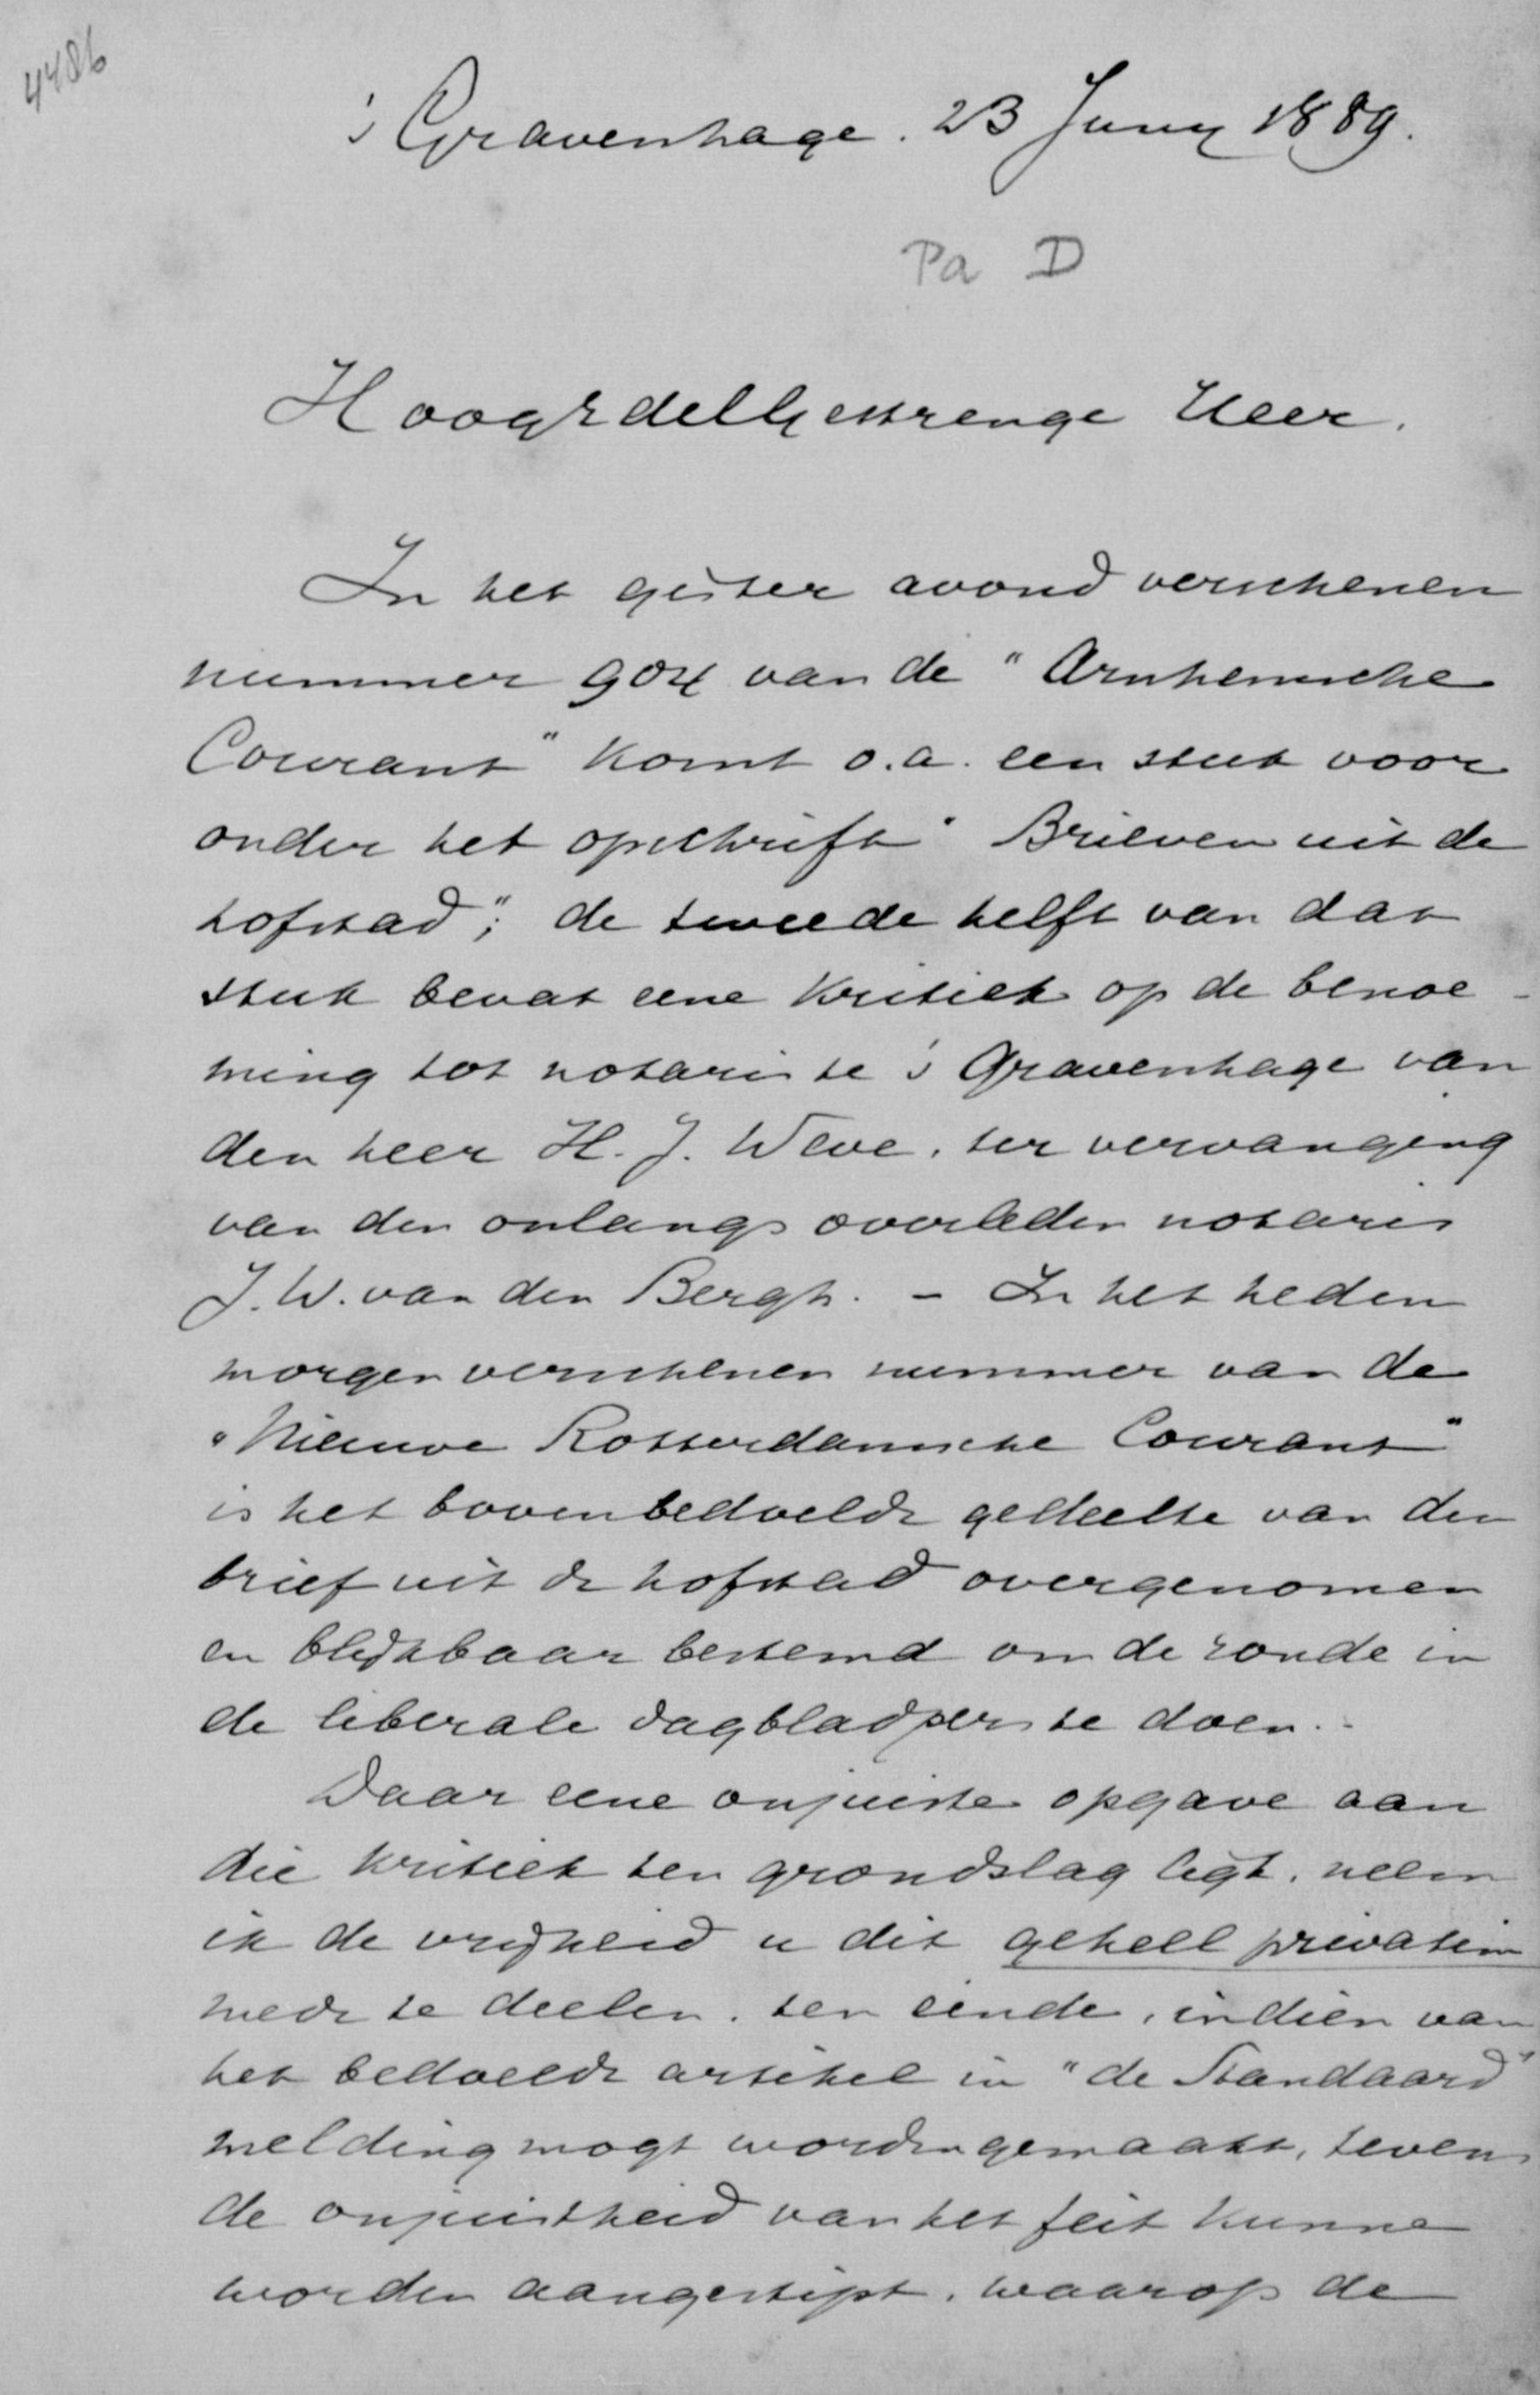 4486
's Gravenhage. 23 Juny 1889.
Pa D
HoogEdelGestrenge Heer.
In het gister avond verschenen
nummer 904 van de "Arnhemsche
Courant" komt o.a. een stuk voor
onder het opschrift "Brieven uit de
hofstad"; de tweede helft van dat
stuk bevat eene kritiek op de benoe-
ming tot notaris te 's Gravenhage van
den heer H. J. Weve, ter vervanging
van den onlangs overleden notaris
J. W. van den Bergh. - In het heden
morgen verschenen nummer van de
"Nieuwe Rotterdamsche Courant"
is het bovenbedoelde gedeelte van den
brief uit de hofstad overgenomen
en blijkbaar bestemd om de ronde in
de liberale dagbladpers te doen. -
Daar eene onjuiste opgave aan
die kritiek ten grondslag ligt, neem
ik de vrijheid u dit geheel privatim
mede te deelen, ten einde, indien van
het bedoelde artikel in "de Standaard"
melding mogt worden gemaakt, tevens
de onjuistheid van het feit kunne
worden aangestipt, waarop de